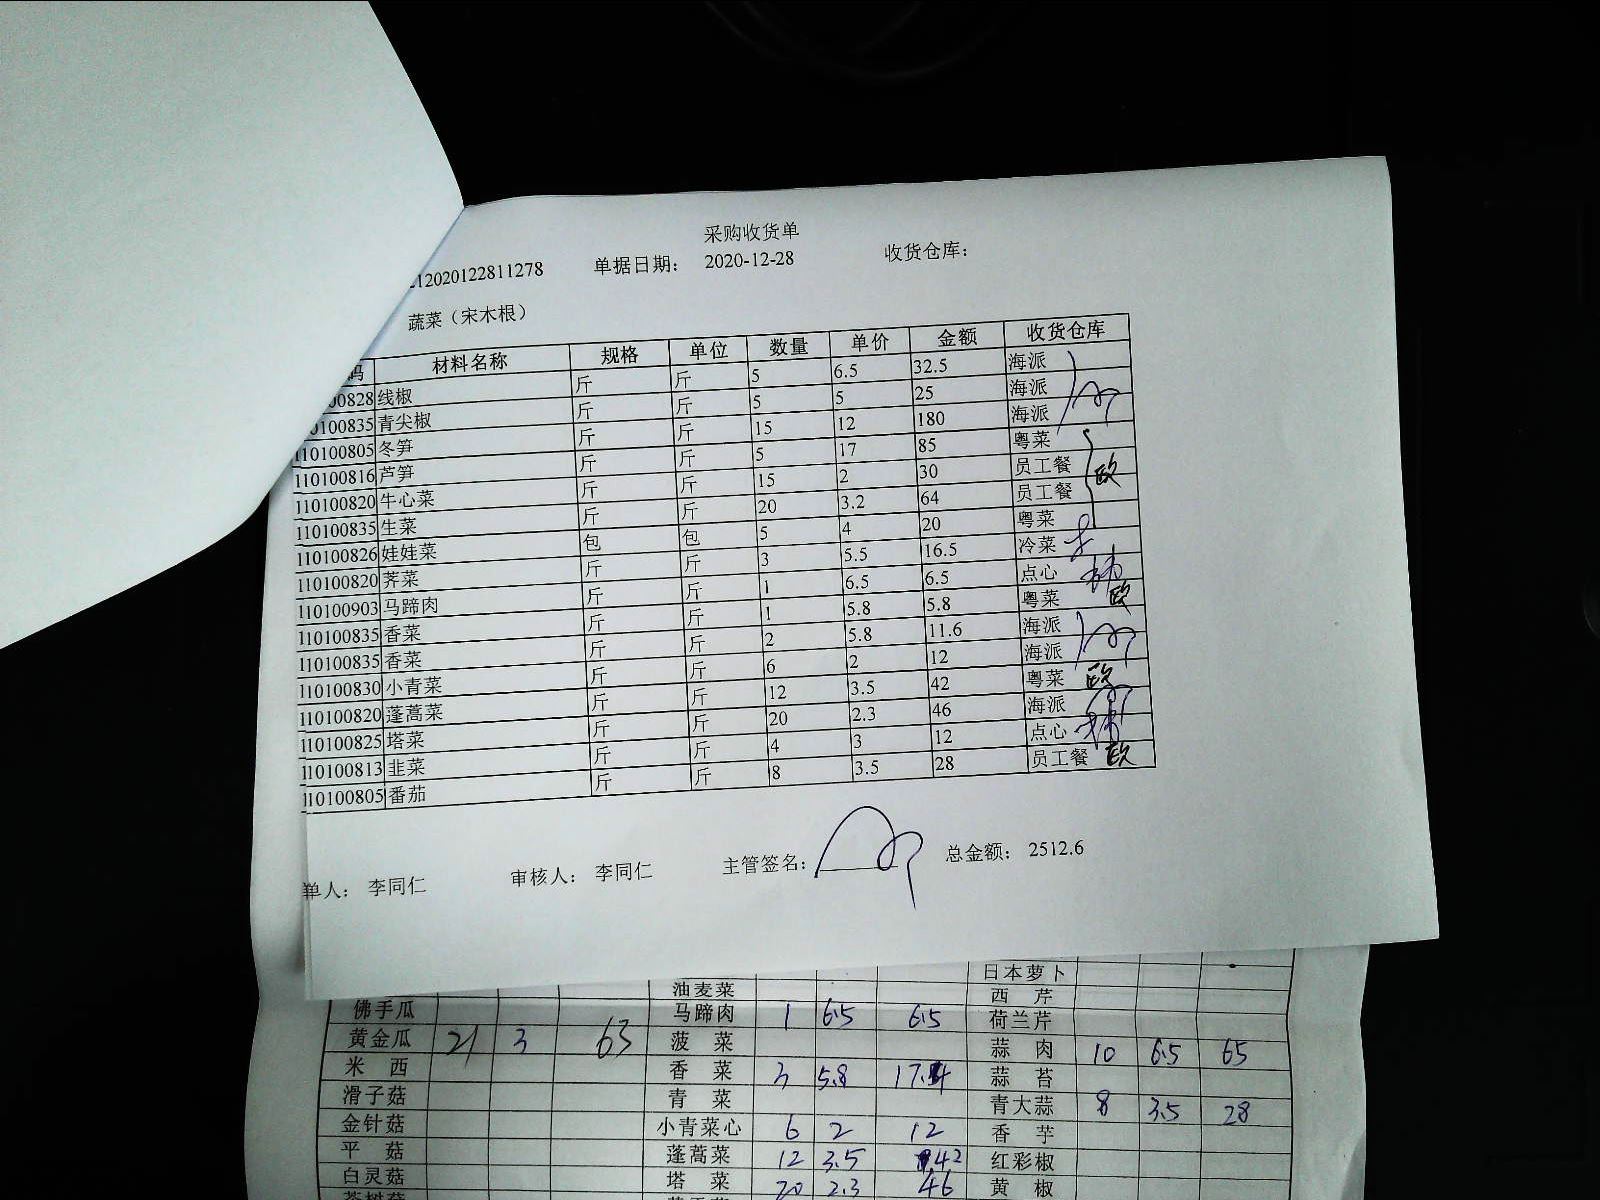 采购收货单
12020122811278 单据日期： 2020-12-28 收货仓库：
蔬菜（宋木根）
码 材料名称 规格 单位 数量 单价 金额 收货仓库
00828 线椒 斤 斤 5 6.5 32.5 海派
0100835 青尖椒 斤 斤 5 5 25 海派
110100805 冬笋 斤 斤 15 12 180 海派
110100816 芦笋 斤 斤 5 17 85 粤菜
110100820 牛心菜 斤 斤 15 2 30 员工餐 欧
110100835 生菜 斤 斤 20 3.2 64 员工餐
110100826 娃娃菜 包 包 5 4 20 粤菜
110100820 荠菜 斤 斤 3 5.5 16.5 冷菜
110100903 马蹄肉 斤 斤 1 6.5 6.5 点心 林
110100835 香菜 斤 斤 1 5.8 5.8 粤菜 欧
110100835 香菜 斤 斤 2 5.8 11.6 海派
110100830 小青菜 斤 斤 6 2 12 海派
110100820 蓬蒿菜 斤 斤 12 3.5 42 粤菜 欧
110100825 塔菜 斤 斤 20 2.3 46 海派
110100813 韭菜 斤 斤 4 3 12 点心 林
110100805 番茄 斤 斤 8 3.5 28 员工餐 欧
单人： 李同仁 审核人： 李同仁 主管签名： 总金额： 2512.6
日本萝卜
油麦菜 西芹
佛手瓜 马蹄肉 1 6.5 6.5 荷兰芹
黄金瓜 21 3 63 菠菜 蒜肉 10 6.5 65
米西 香菜 3 5.8 17.4 蒜苔
滑子菇 青菜 青大蒜 8 3.5 28
金针菇 小青菜心 6 2 12 香芋
平菇 蓬蒿菜 12 3.5 42 红彩椒
白灵菇 塔菜 20 2.3 46 黄椒